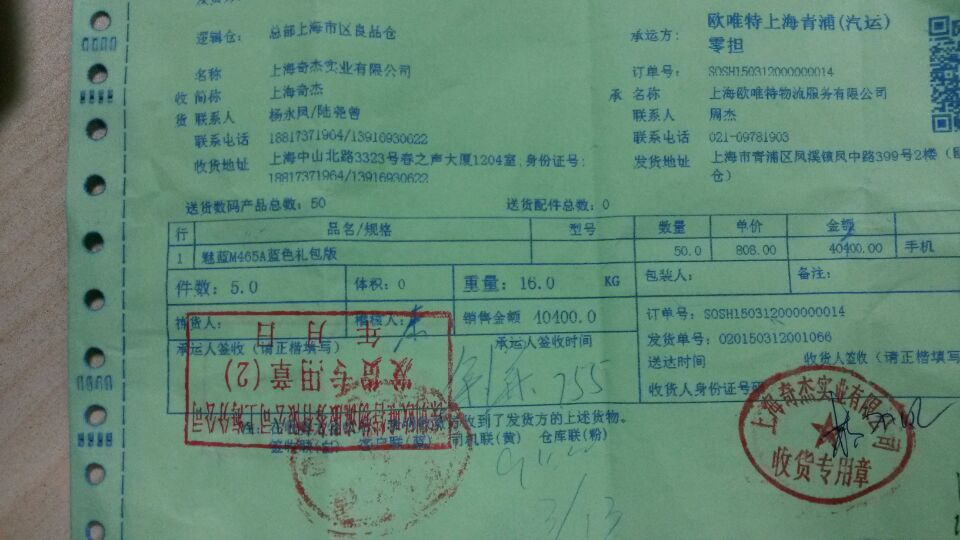 逻辑仓： 总部上海市区良品仓
承运方： 欧唯特上海青浦(汽运)
零担
名称 上海奇杰实业有限公司
订单号： SOSH150312000000014
收 简称 上海奇杰
承 名称 上海欧唯特物流服务有限公司
货 联系人 杨永凤/陆尧曾
联系人 周杰
联系电话 18817371964/13910930622
联系电话 021-09781903
收货地址 上海中山北路3323号春之声大厦1204室,身份证号:
18817371964/13916930622
发货地址 上海市青浦区凤溪镇凤中路399号2楼
仓）
送货数码产品总数: 50 送货配件总数: 0
行 品名/规格 型号 数量 单价 金额
1 魅蓝M465A蓝色礼包版 50.0 808.00 40400.00 手机
件数: 5.0 体积: 0 重量: 16.0 KG 包装人: 备注:
拣货人: 稽核人: 销售金额 40400.0
订单号: SOSH150312000000014
发货单号: 020150312001066
承运人签收（请正楷填写） 承运人签收时间
送达时间 收货人签收（请正楷填写
收货人身份证号码
年 月 日
发货专用章
(2)
收到了发货方的上述货物。
司机联(黄) 仓库联(粉)
755
3/13
上海奇杰实业有限公司
收货专用章